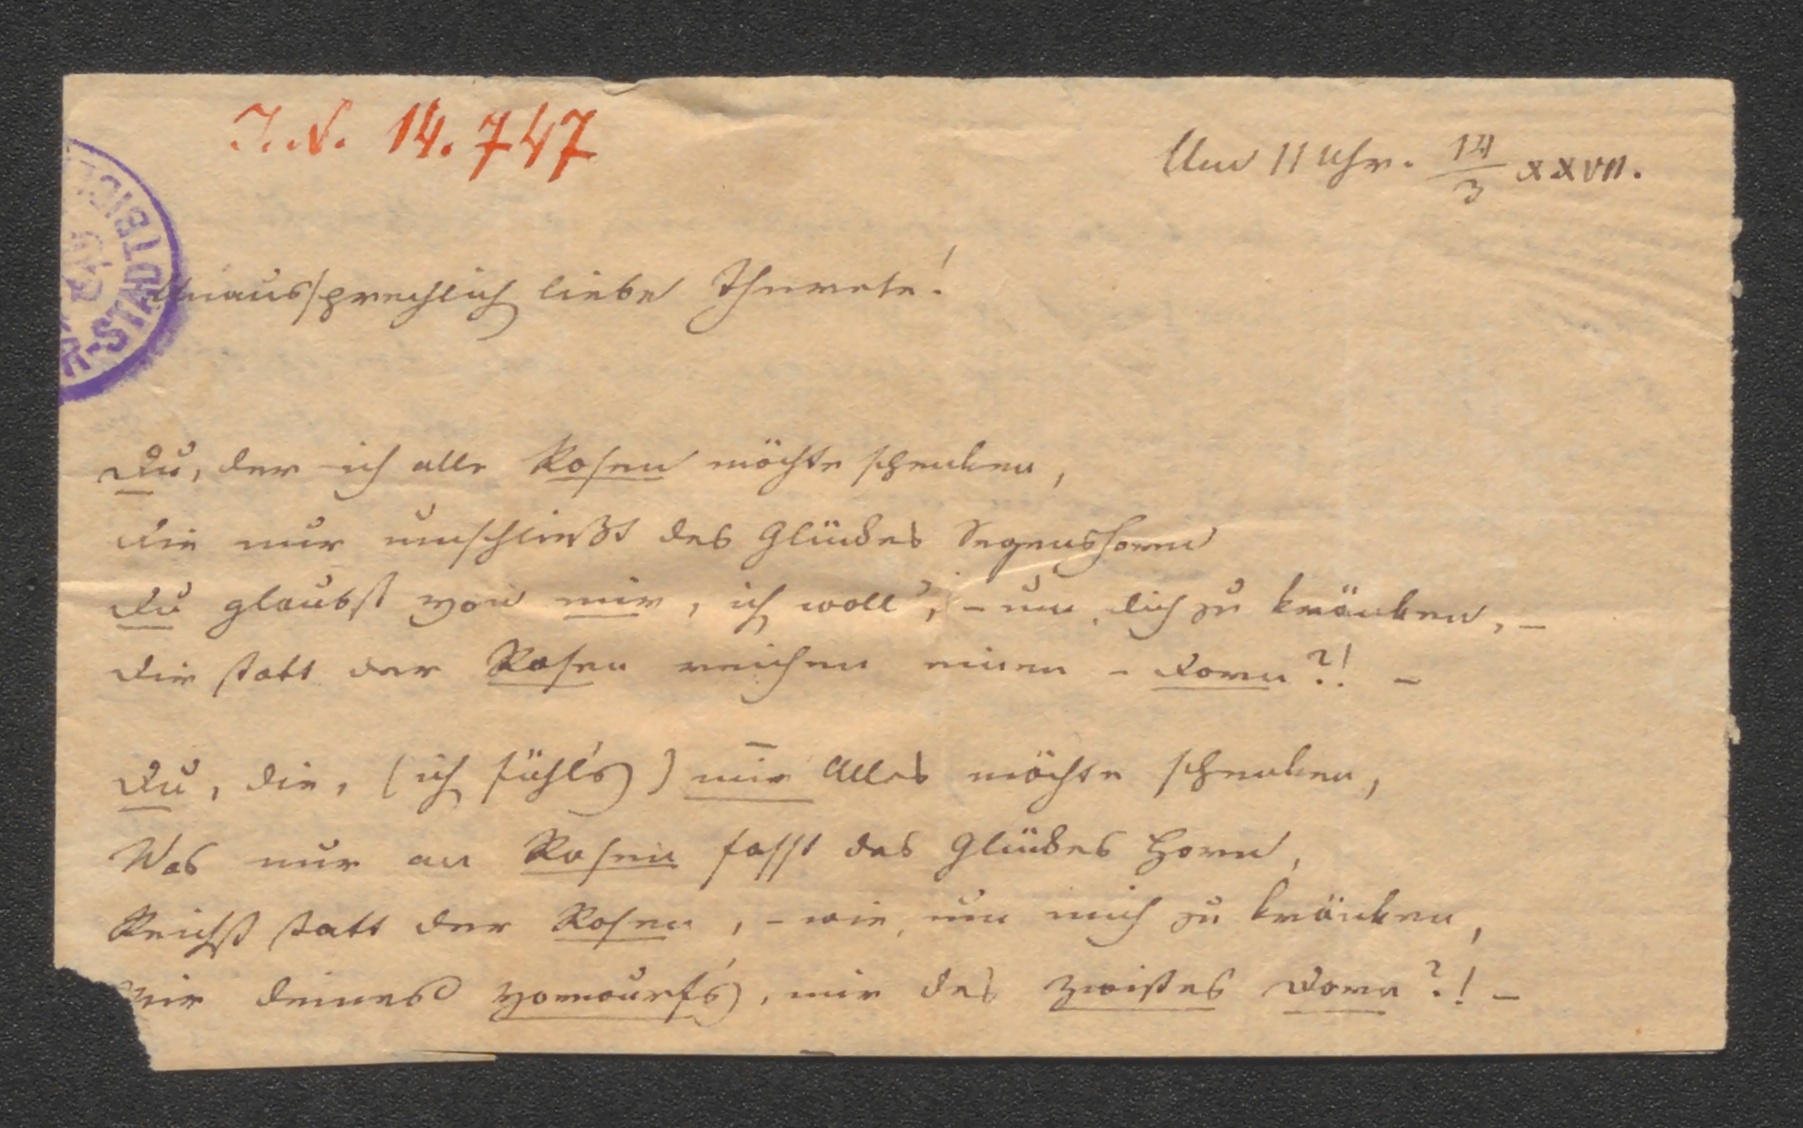 I.N. 14.747
Um 11 Uhr. 14/3 XXVII.
Unaussprechlich liebe Therese!
Du, der ich alle Rosen möchte schenken,
Die nur umschließt des Glückes Segenshorn
Du glaubst von mir, ich woll', – um dich zu kränken, –
Dir statt der Rosen reichen einen – Dorn?! –
Du, die, (ich fühl's) mir Alles möchte schenken,
Was nur an Rosen fasst des Glückes Horn,
Reichst statt der Rosen, – wie um mich zu kränken,
Mir deines Vorwurfs, mir des Zwistes Dorn?! –